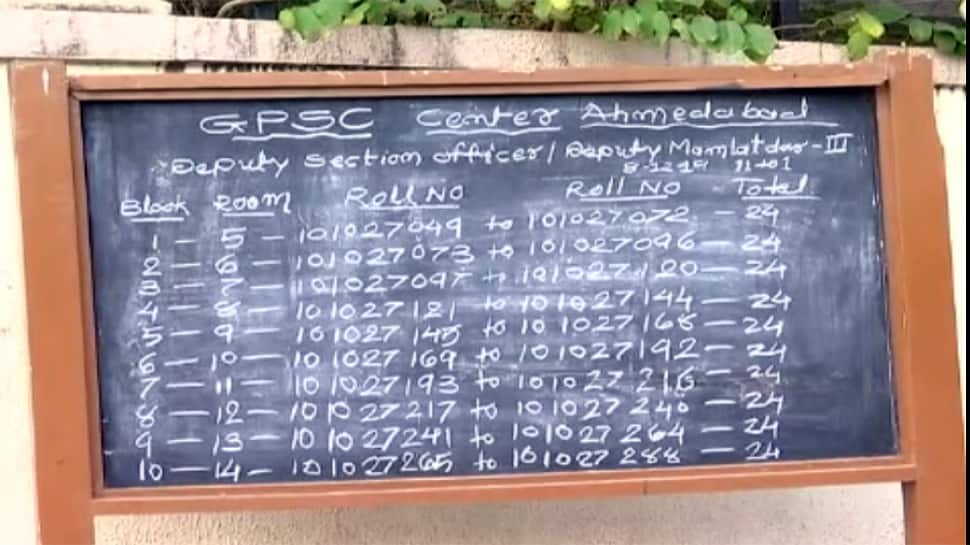 GPSC Center Ahmedabad
Deputy Section officer / Deputy Mamlatdar - III
8-12-19 11 to 1
Block Room Roll No Roll No Total
1 - 5 - 101027049 to 101027072 - 24
2 - 6 - 101027073 to 101027096 - 24
3 - 7 - 101027097 to 101027120 - 24
4 - 8 - 101027121 to 101027144 - 24
5 - 9 - 101027145 to 101027168 - 24
6 - 10 - 101027169 to 101027192 - 24
7 - 11 - 101027193 to 101027216 - 24
8 - 12 - 101027217 to 101027240 - 24
9 - 13 - 101027241 to 101027264 - 24
10 - 14 - 101027265 to 101027288 - 24